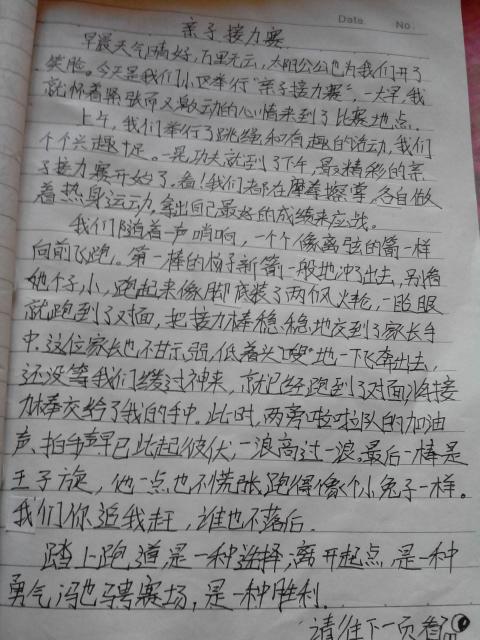 Date.    No.
亲子接力赛
早晨天气晴好，万里无云，太阳公公也为我们开了
笑脸。今天是我们小区举行“亲子接力赛”，一大早，我
就怀着紧张而又激动的心情来到了比赛地点。
上午，我们举行了跳绳和有趣的活动，我们
个个兴趣十足。一晃功夫就到了下午，最精彩的亲
子接力赛开始了。看！我们都在摩拳擦掌，各自做
着热身运动，拿出自己最好的成绩来应战。
我们随着一声哨响，一个个像离弦的箭一样
向前飞跑。第一棒的杨子新箭一般地冲了出去，别看
她个子小，跑起来像脚底装了两个风火轮，一眨眼
就跑到了对面，把接力棒稳稳地交到了家长手
中。这位家长也不甘示弱，低着头“嗖”地一下飞奔出去，
还没等我们缓过神来，就已经跑到了对面，将接
力棒交给了我的手中。此时，两旁啦啦队的加油
声、拍手声早已此起彼伏，一浪高过一浪。最后一棒是
王子旋，他一点也不慌张，跑得像个小兔子一样。
我们你追我赶，谁也不落后。
踏上跑道，是一种选择；离开起点，是一种
勇气；冯也骋赛场，是一种胜利。
请往下一页看